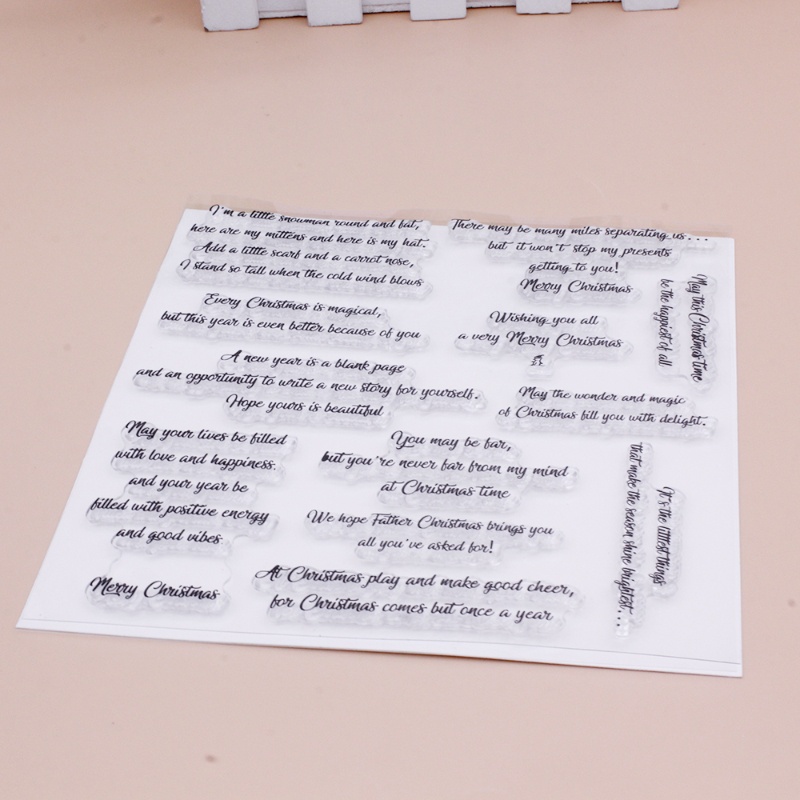 I'm a little snowman round and fat,
here are my mittens and here is my hat.
Add a little scarf and a carrot nose,
I stand so tall when the cold wind blows
Every Christmas is magical,
but this year is even better because of you
A new year is a blank page
and an opportunity to write a new story for yourself.
Hope yours is beautiful
May your lives be filled
with love and happiness.
and your year be
filled with positive energy
and good vibes
Merry Christmas
There may be many miles separating us...
but it won't stop my presents
getting to you!
Merry Christmas
Wishing you all
a very Merry Christmas
May the wonder and magic
of Christmas fill you with delight.
You may be far,
but you're never far from my mind
at Christmas time
We hope Father Christmas brings you
all you've asked for!
At Christmas play and make good cheer,
for Christmas comes but once a year
May this Christmas time
be the happiest of all
It's the littlest things
that make the season shine brightest...